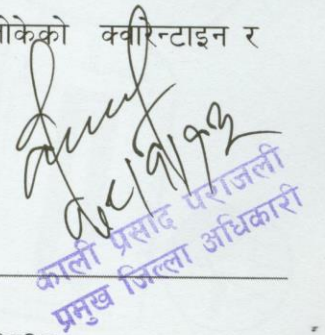 तोकेको क्वारेन्टाइन र
काली प्रसाद पराजली
प्रमुख जिल्ला अधिकारी